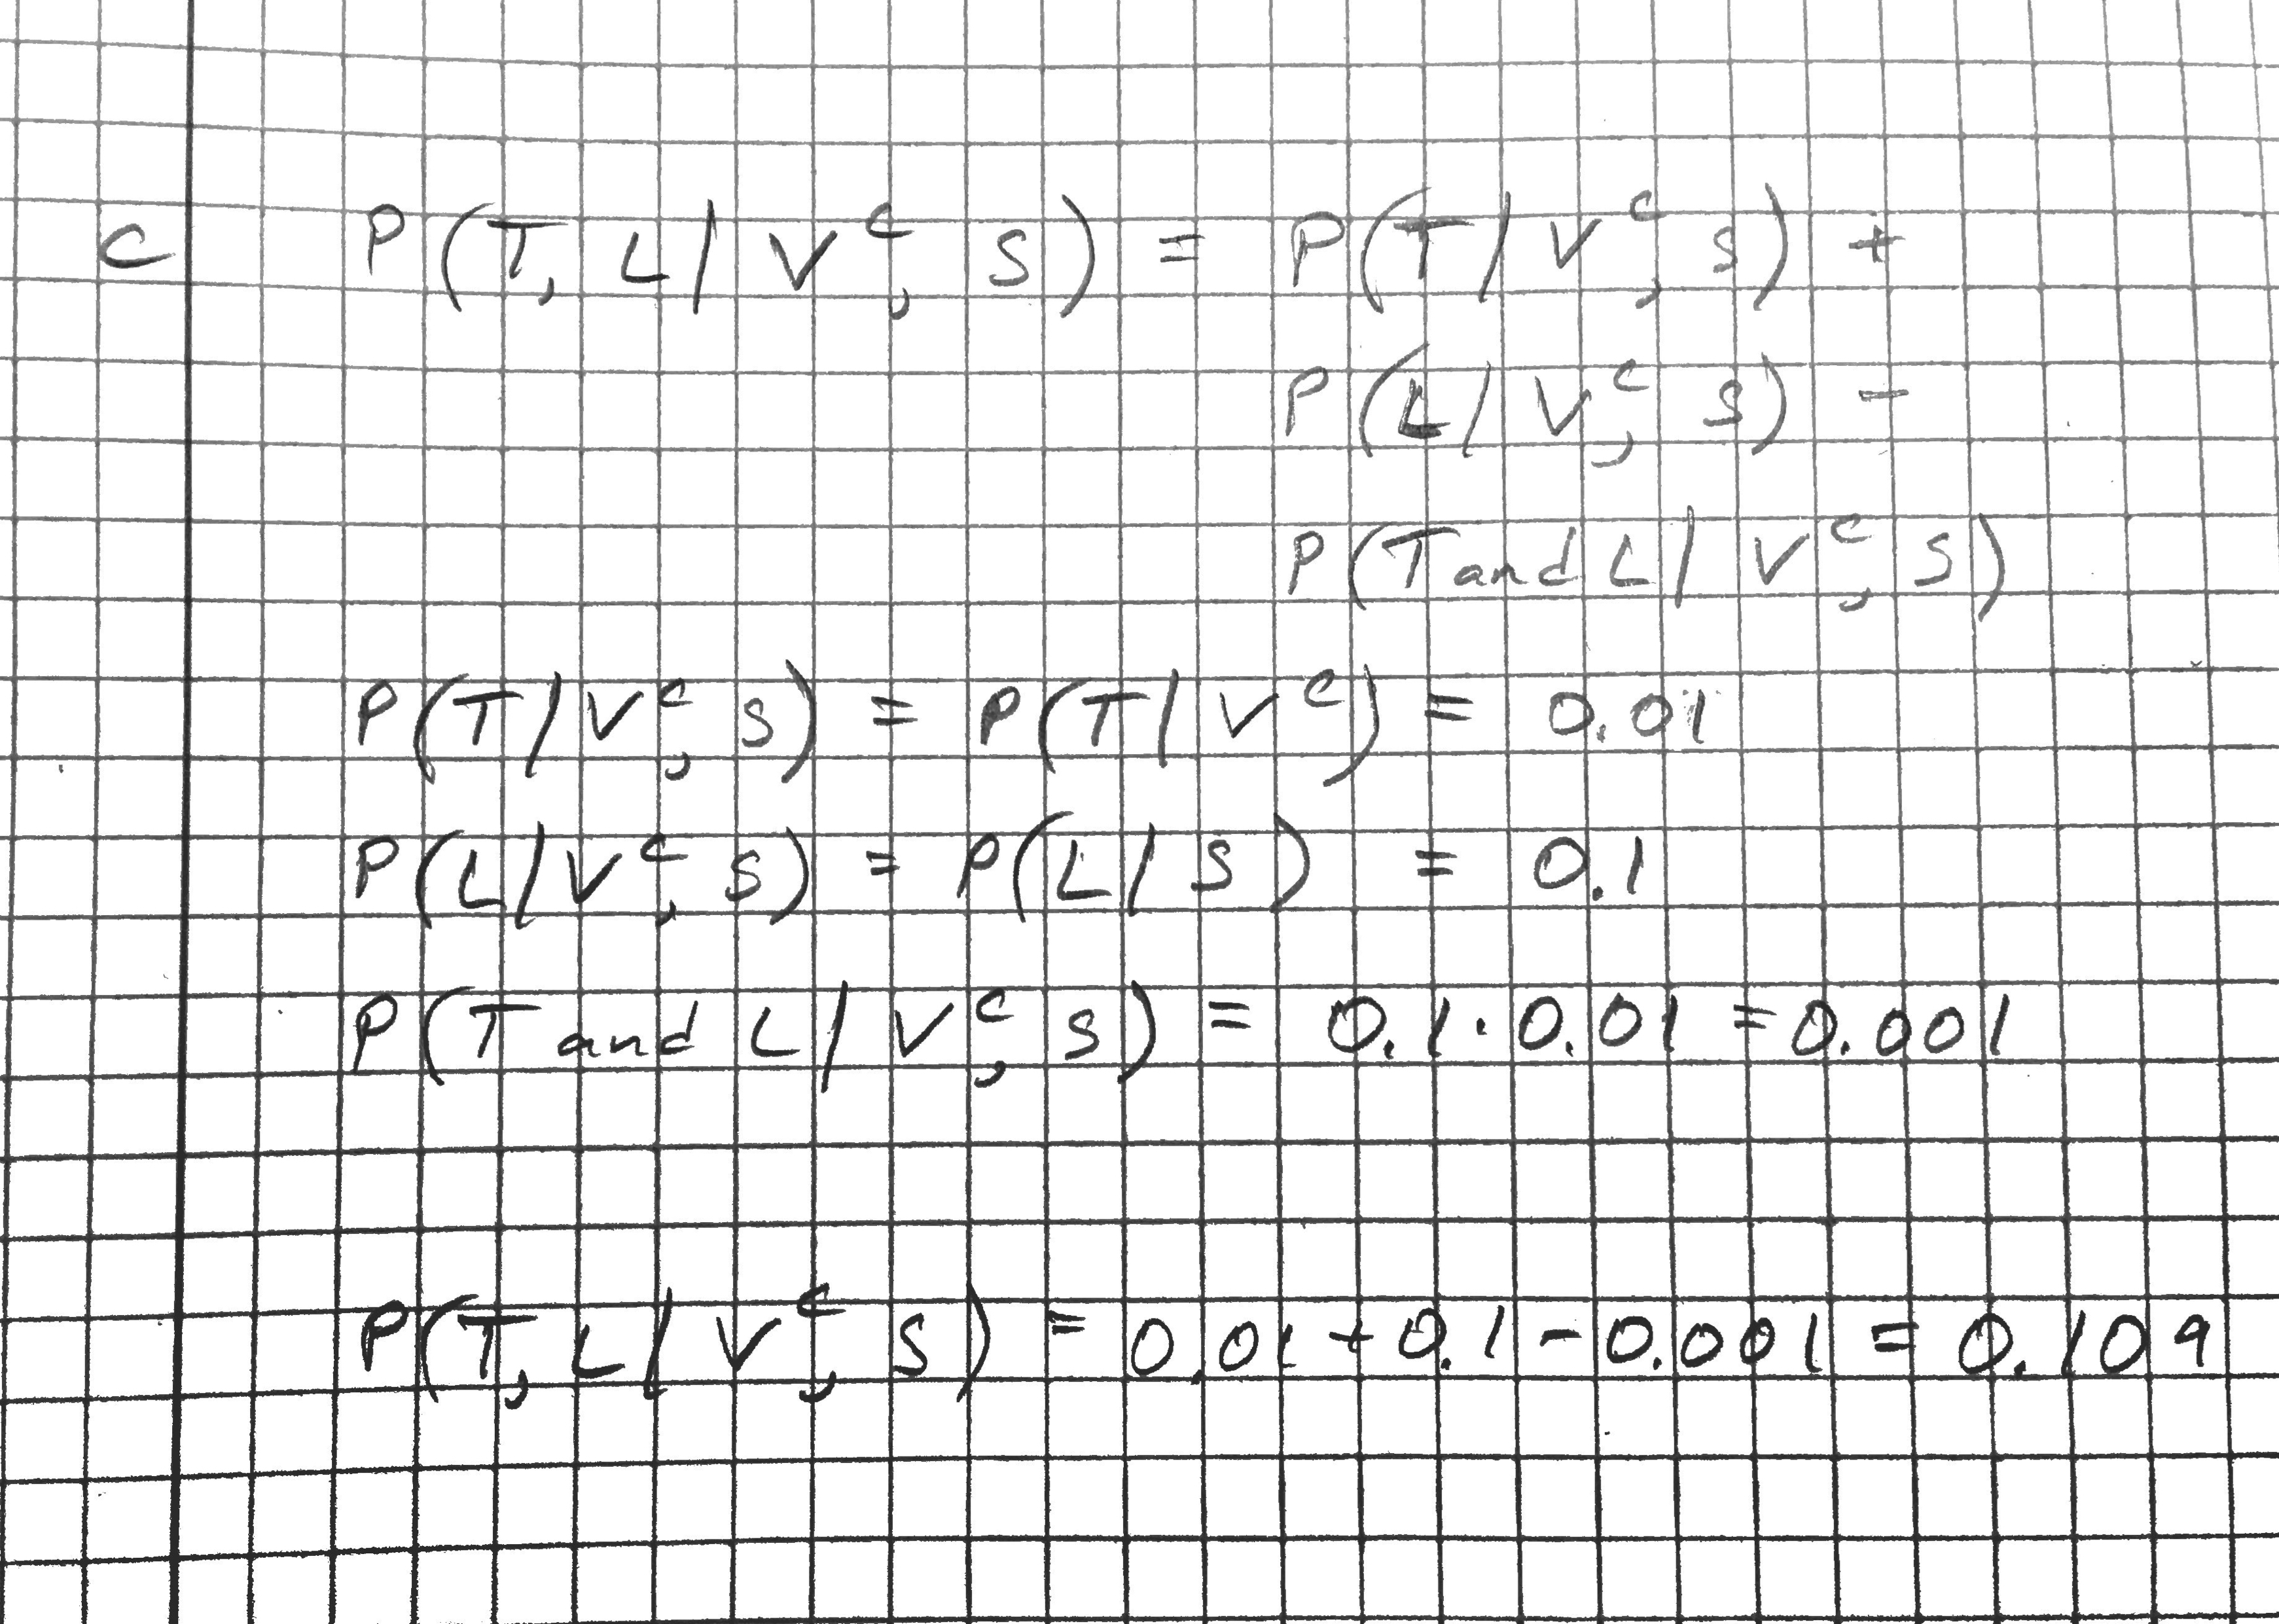 c P(T, L/ V^c, S) = P(T/V^c, S) +
P(L/V^c, S) -
P(T and L/ V^c, S)
P(T/V^c, S) = P(T/V^c) = 0.01
P(L/V^c, S) = P(L/S) = 0.1
P(T and L/ V^c, S) = 0.1 · 0.01 = 0.001
P(T, L/ V^c, S) = 0.01 + 0.1 - 0.001 = 0.109